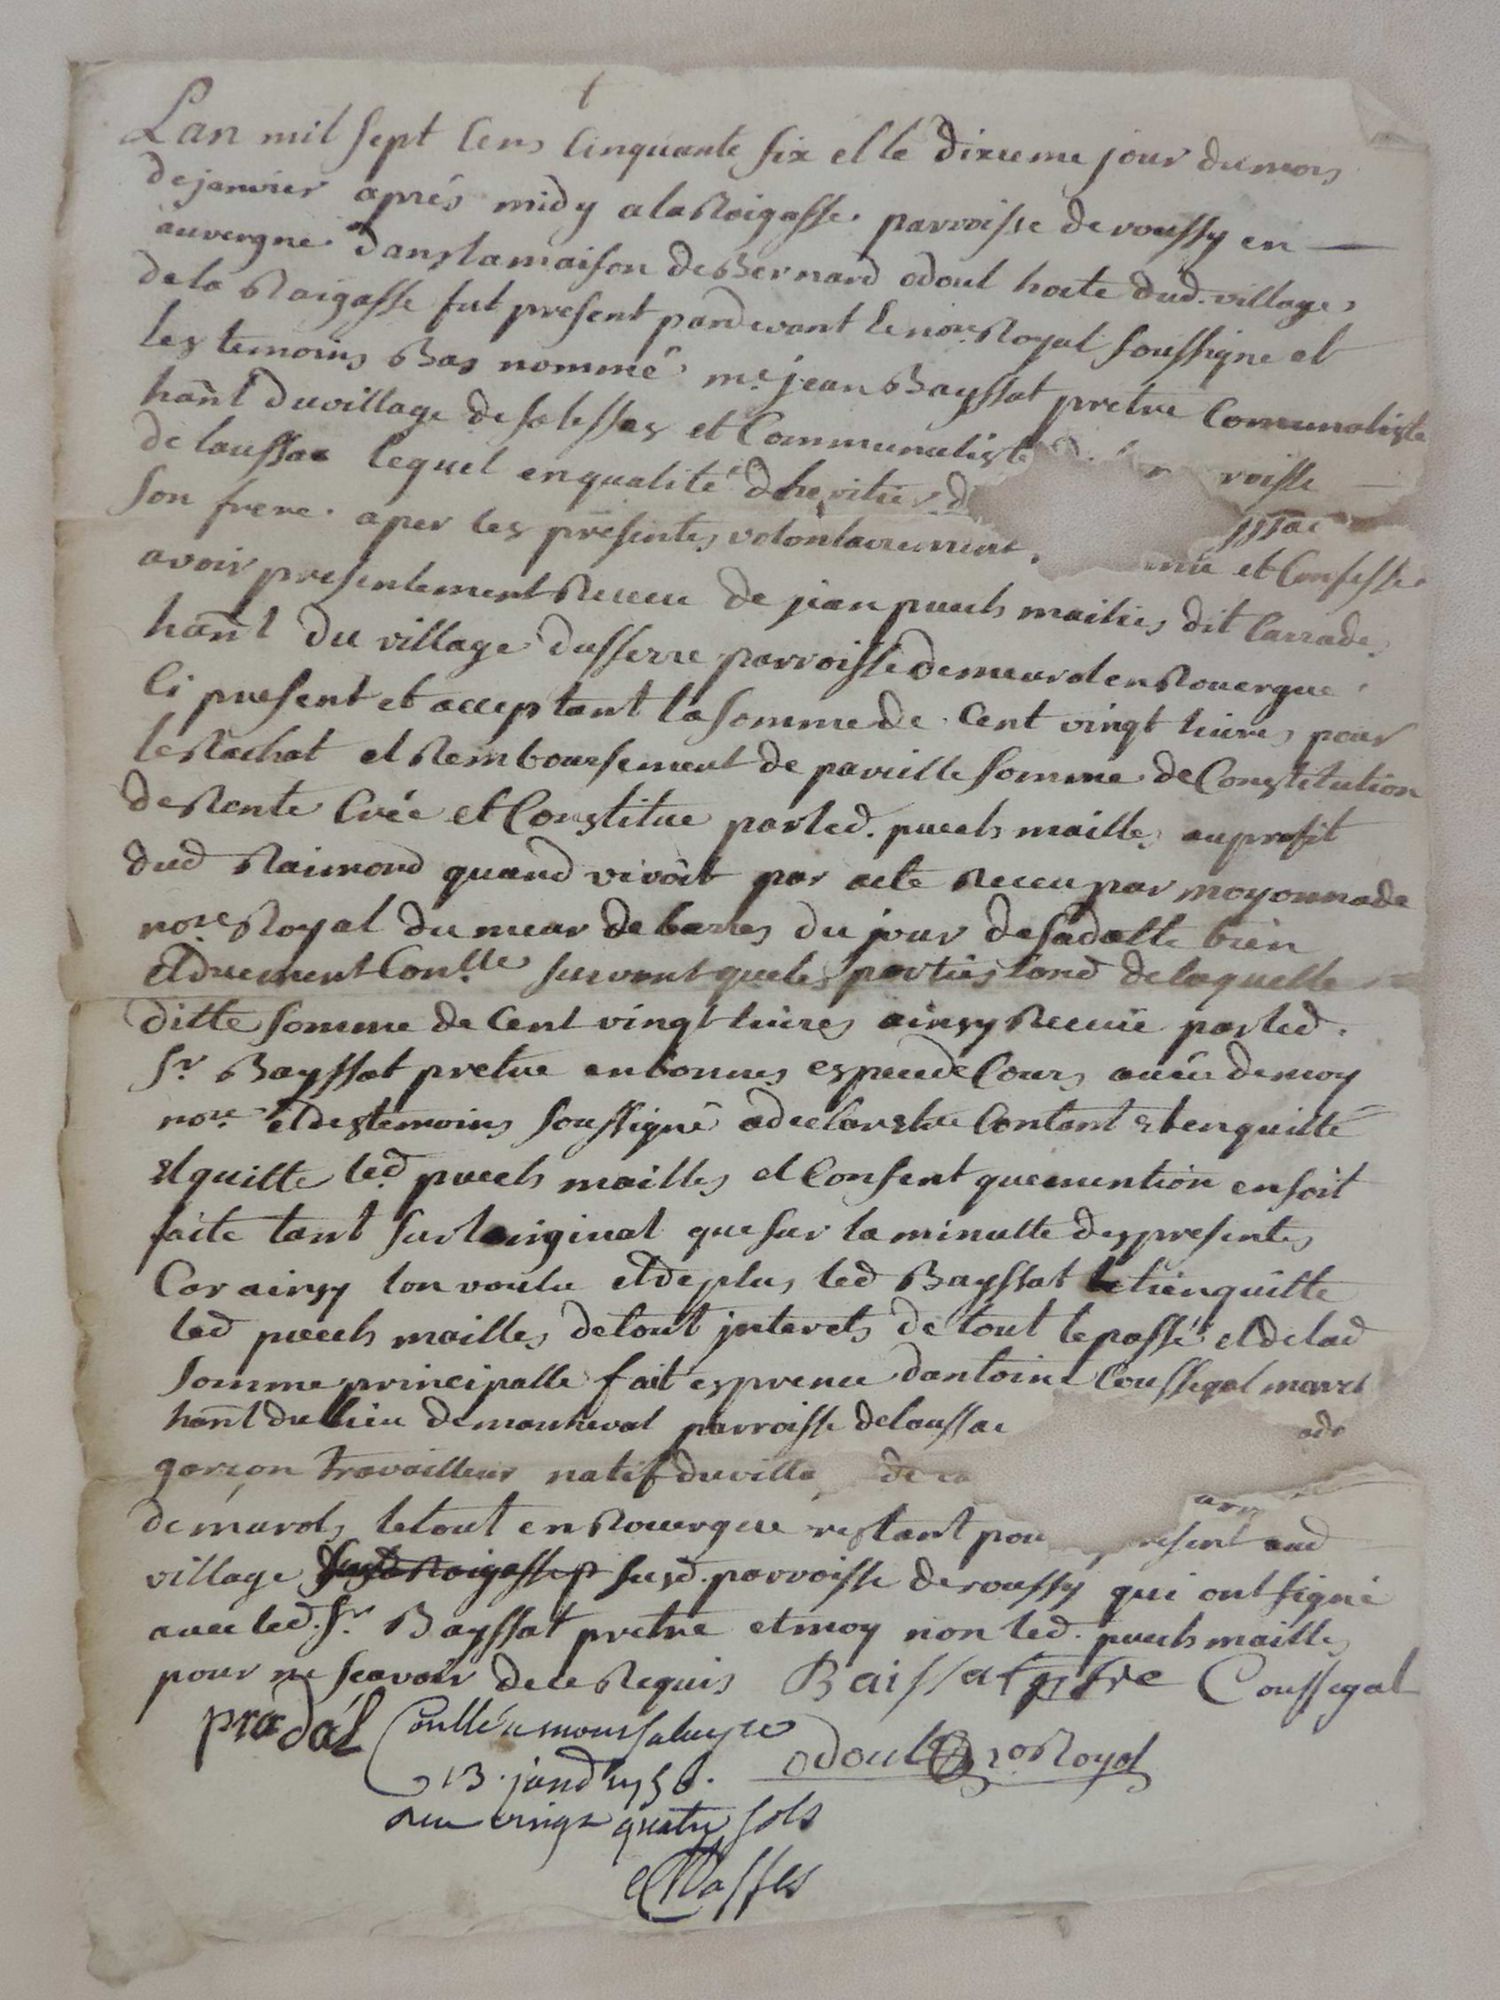 Lan mil sept Cens Cinquante six et le dixieme jour du mois
de janvier aprés midy a la Roigasse parroisse de roussy en
auvergne dans la maison de Bernard odoul hoite dud. village
de la Roigasse fut present pardevant le nore Royal soussigne et
les temoins Bas nommé mr. jean Bayssat pretre Comunaliste
hant du village de salesses et Communaliste roisse
de laussac lequel en qualité dheritier d ssac
son frere a per les presentes volontairement et Confesse
avoir presentement Receu de jean puech mailles dit Carrade
hant du village dusserre parroisse de murol en Rouergue
Ci present et acceptant la somme de Cent vingt livres pour
le Rachat et Remboursement de pareille somme de Constitution
de Rente Créé et Constitue par led. puech mailles au profit
dud Raimond quand vivoit par acte Receu par moyonnade
nore Royal du mur de barres du jour de sa datte bien
et duement Conlle suivant que les parties lond de laquelle
ditte somme de Cent vingt livres ainsy Receüe par led.
Sr. Bayssat pretre en bonnes espece de Cours aueü de moy
nore. et des temoins soussigné a declaré etre Contant et en quitté
et quitte led. puech mailles et Consent que mention en soit
faite tant sur loriginal que sur la minutte des presentes
Car ainsy lon voulu et de plus led Bayssat le tien quitte
led puech mailles de tout interets de tout le passé et de lad
somme principalle fait es presence dantoine Coussegal march
hant du lieu de manheval parroisse de laussac
garçon travailleur natif du villa de
de murols le tout en Rouergue restant pour present aud
village susd. parroisse de roussy qui ont signé
avec led. Sr. Bayssat pretre et moy non led. puech mailles
pour ne scavoir de ce Requis Baissat ptre Coussegal
pradal Conllé a moussalugre odoul no Royal
13. janv 1756.
receu vingt quatre sols
Masses